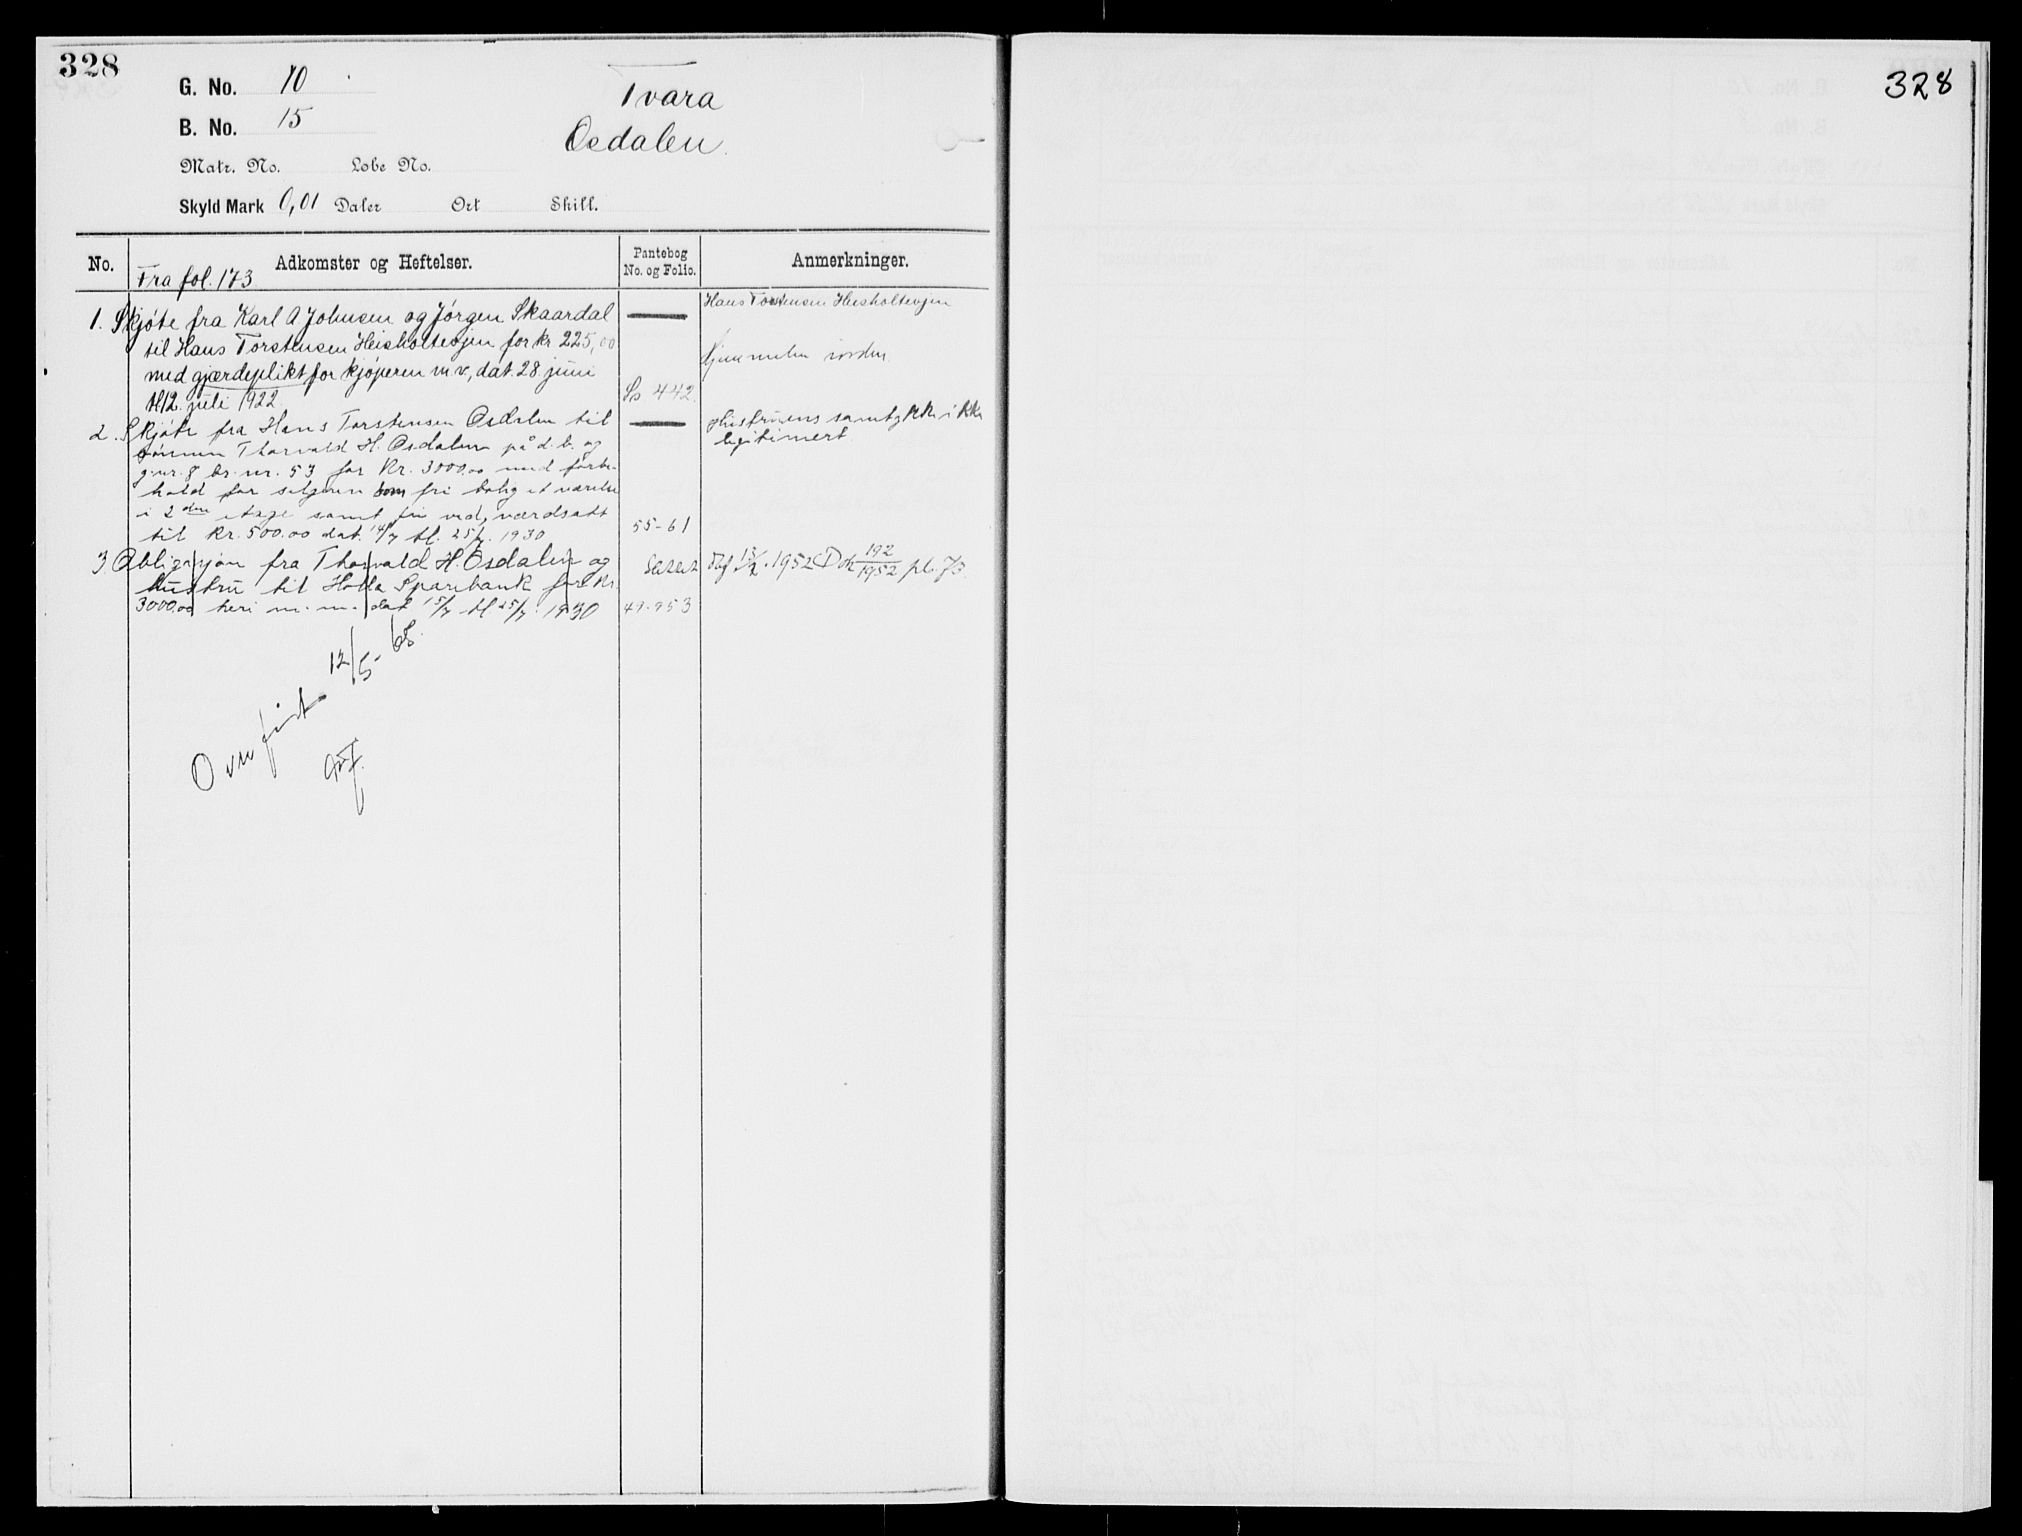 328
G. No. 10
B. No. 15
Matr. No. Løbe No.
Skyld Mark 0,01 Daler Ort Skill.
Tvara
Osdalen
No.
Adkomster og Heftelser.
Pantebog
No. og Folio.
Anmerkninger.
Fra fol. 173
1. Skjøte fra Karl A Johnsen og Jørgen Skaardal
til Hans Torstensen Heisholteujen for kr 225,00
med gjærdeplikt for kjøperen m.v, dat. 28 juni
tl 12. juli 1922
442
Hans Torstensen Heisholteujen
hjemmelen iorden
2. Skjøte fra Hans Torstensen Osdalen til
sønnen Thorvald H. Osdalen på d.b. og
g.nr. 8 br.nr. 53 for Kr. 3000.00 med forbe-
hold for selgeren som fri bolig et værelse
i 2den etage samt fri ved, værdsatt
til kr. 500.00 dat. 14/7 tl. 25/7. 1930
55-61
Hustruens samtykke ikke
legitimert
3. Obligasjon fra Thorvald H. Osdalen og
hustru til Holla Sparebank for kr.
3000.00 heri m.m. dat 15/7 tl 25/7. 1930
Slettet
49-953
1952 D 192/1952 pb. 73
Overført 12/5-68.
328